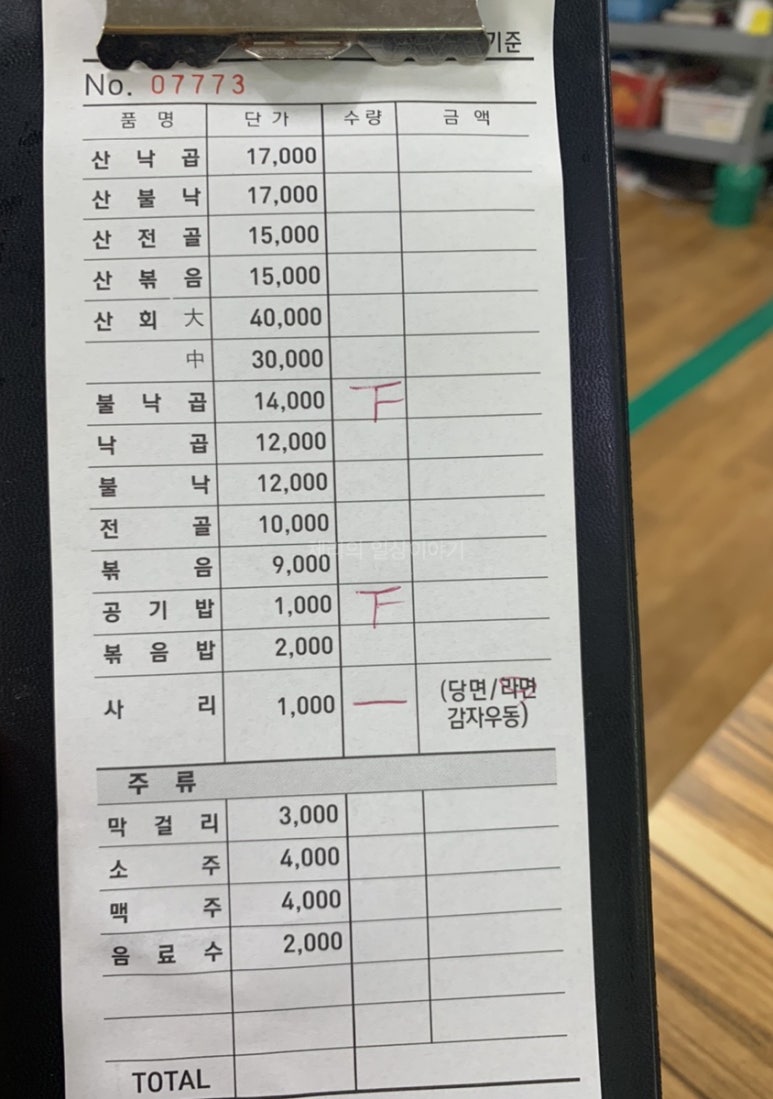 기준
No. 07773
품 명 단 가 수 량 금 액
산 낙 곱 17,000
산 불 낙 17,000
산 전 골 15,000
산 볶 음 15,000
산 회 大 40,000
中 30,000
불 낙 곱 14,000 𝍤
낙 곱 12,000
불 낙 12,000
전 골 10,000
볶 음 9,000
일상이야기
공 기 밥 1,000 𝍤
볶 음 밥 2,000
사 리 1,000 一 (당면/라면
감자우동)
주 류
막 걸 리 3,000
소 주 4,000
맥 주 4,000
음 료 수 2,000
TOTAL